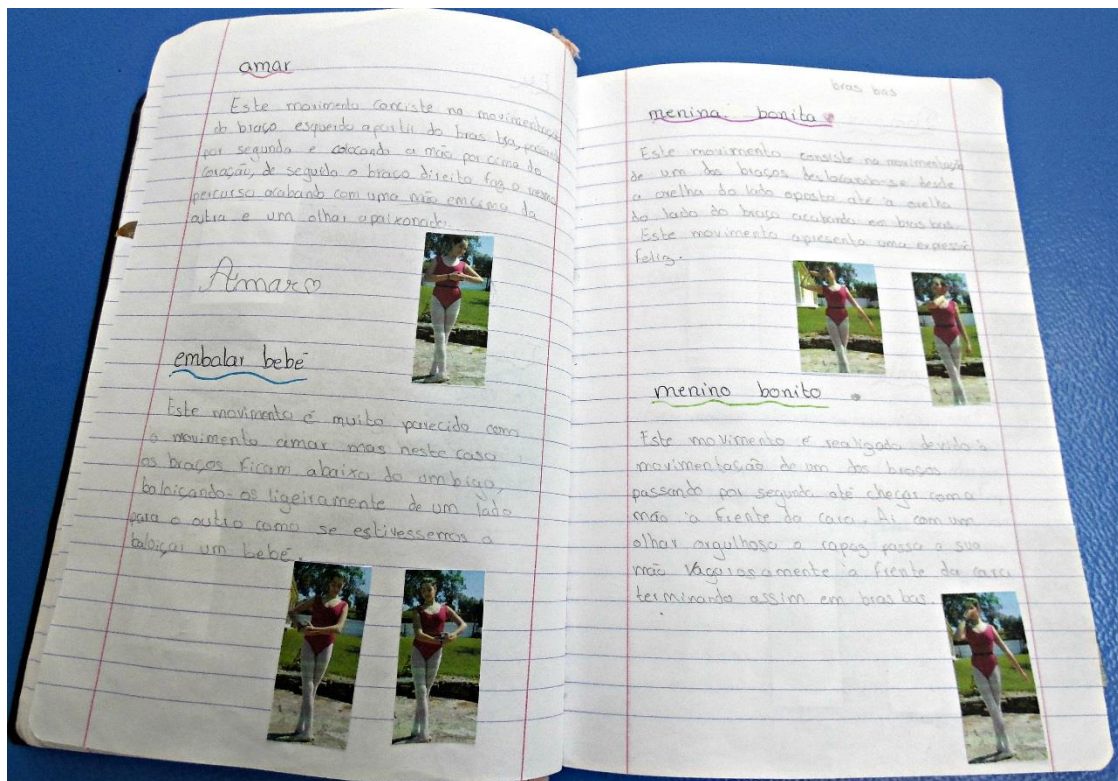 amar
Este movimento consiste na movimentação
do braço esquerdo apartir do bras bra, passando
por segunda e colocando a mão por cima do
coração, de seguida o braço direito faz o mesmo
percurso acabando com uma mão em cima da
outra e um olhar apaixonado.
Amar
embalar bebé
Este movimento é muito parecido como
o movimento amar mas neste caso
os braços ficam abaixo do umbigo,
baloiçando-os ligeiramente de um lado
para o outro como se estivessemos a
baloiçar um bebé.
bras bas
menina bonita
Este movimento consiste na movimentação
de um dos braços deslocando-se desde
a orelha do lado oposto até à orelha
do lado do braço acabando em bras bas.
Este movimento apresenta uma expressão
feliz.
menino bonito
Este movimento é realizado devido à
movimentação de um dos braços
passando por segunda até chegar com a
mão à frente da cara. Aí com um
olhar orgulhoso o rapaz passa a sua
mão vagarosamente à frente da cara
terminando assim em bras bas.